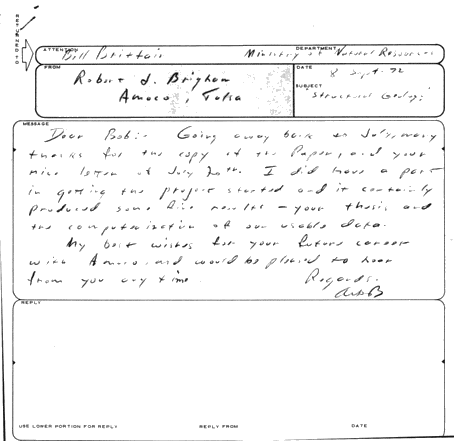 RETURN TO
ATTENTION
Bill Brittain
DEPARTMENT
Ministry of Natural Resources
FROM
Robert J. Brigham
Amoco, Tulsa
DATE
8 Sept. 72
SUBJECT
"Structural Geology"
MESSAGE
Dear Bob:- Going away back to July, many
thanks for the copy of the Paper, and your
nice letter of July 20th. I did have a part
in getting the project started and it certainly
produced some fine results - your thesis and
the computerization of our usable data.
My best wishes for your future career
with Amoco, and would be pleased to hear
from you any time.
Regards.
REPLY
USE LOWER PORTION FOR REPLY
REPLY FROM
DATE